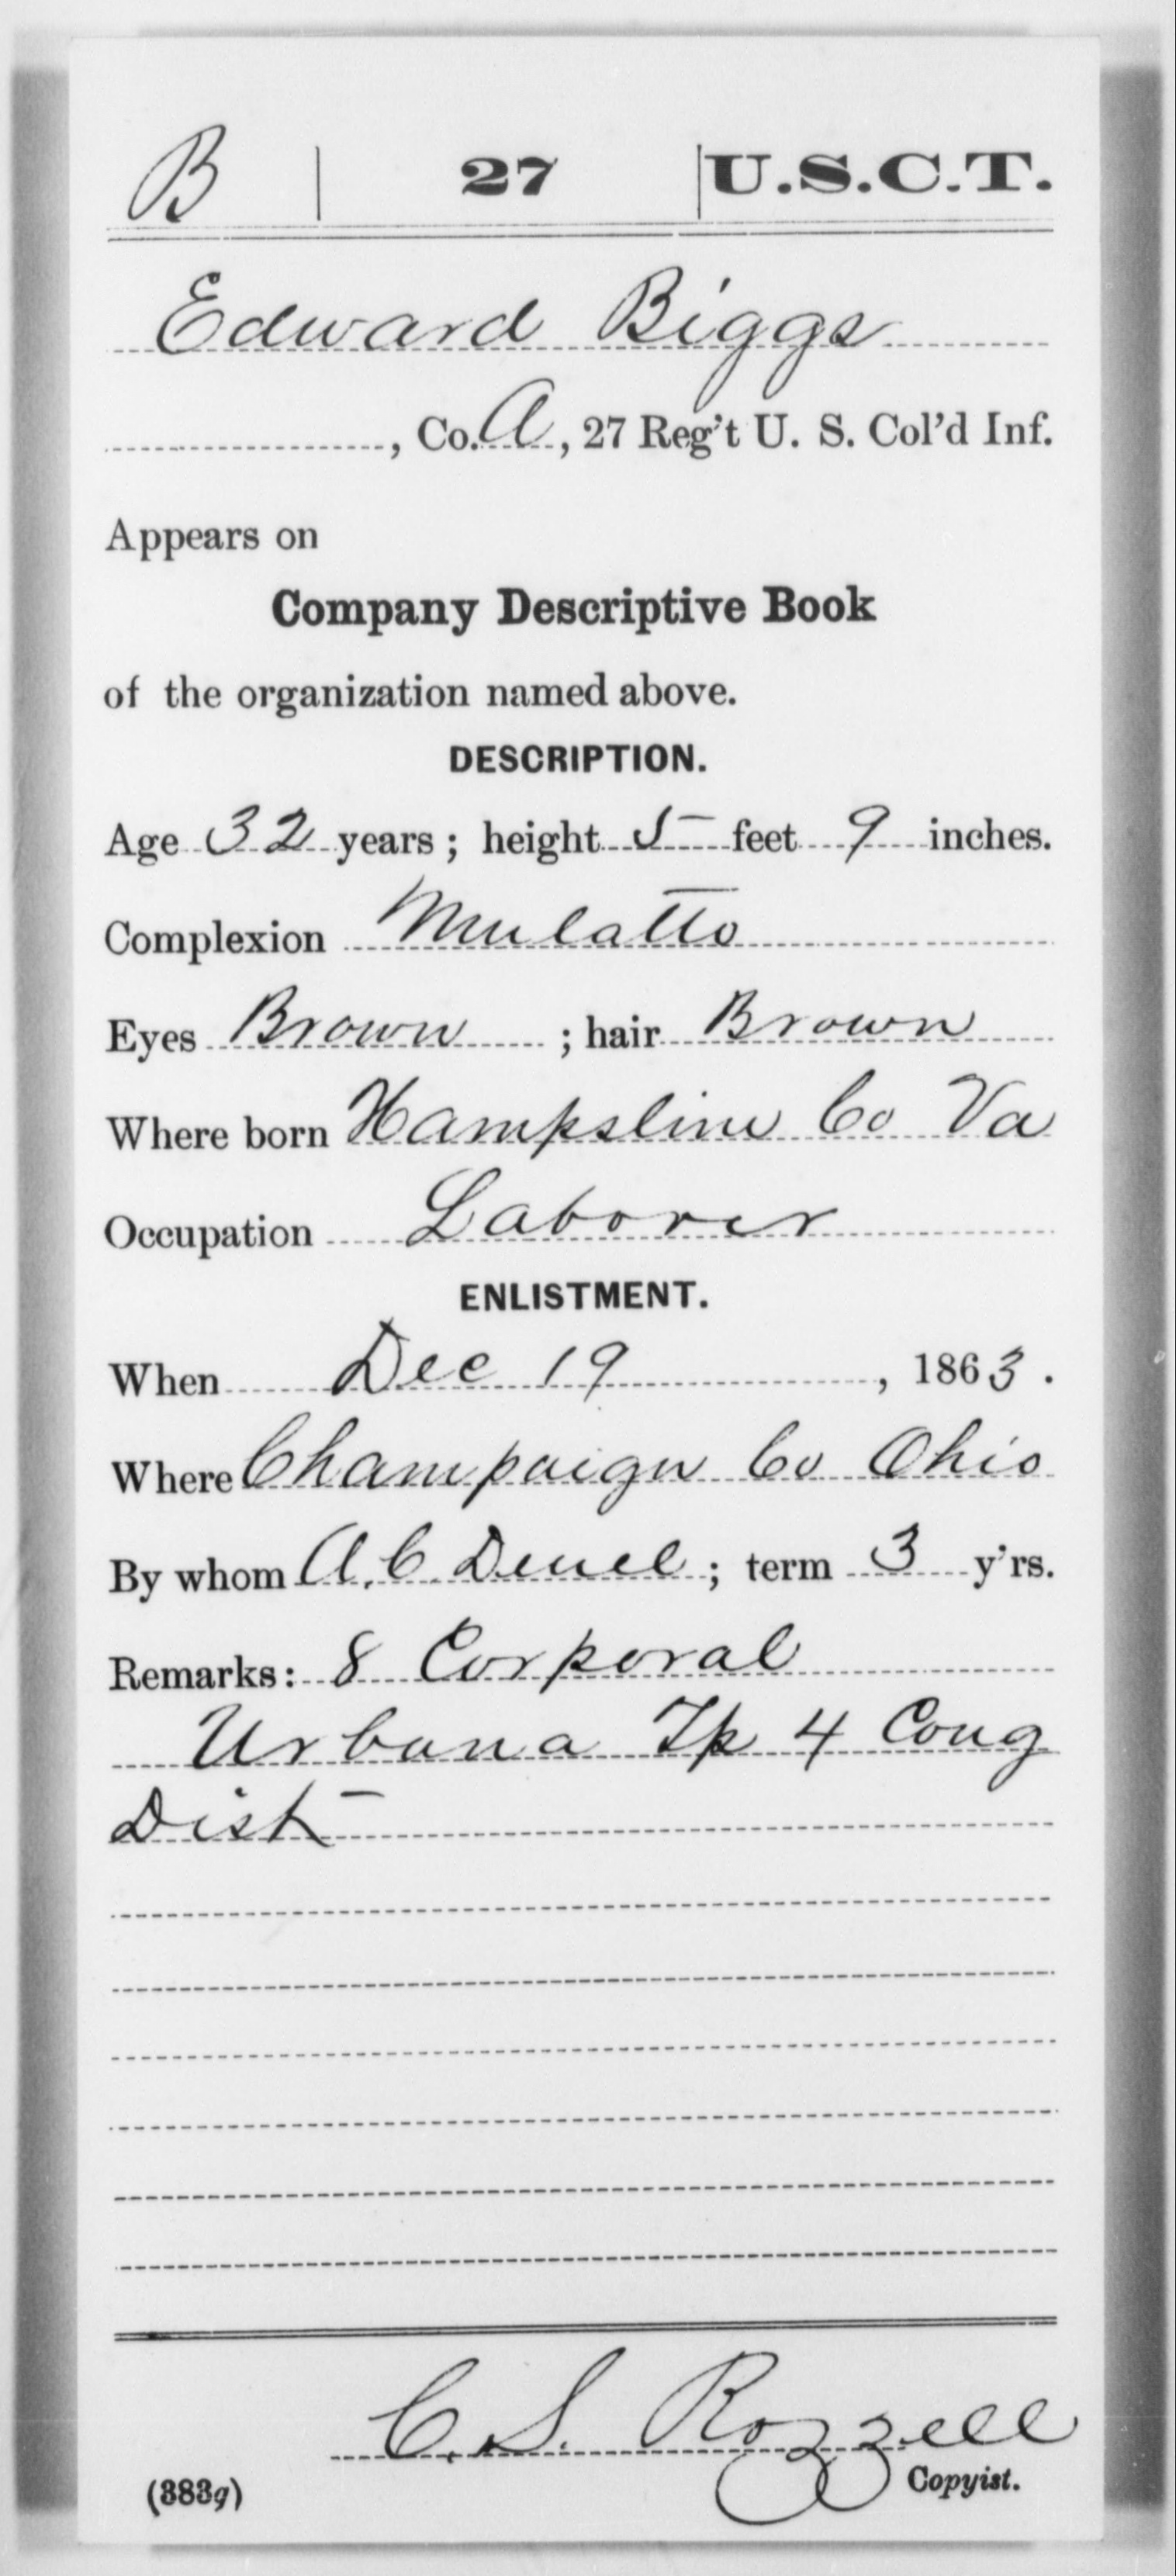 B | 27 | U.S.C.T.
Edward Biggs
, Co. A, 27 Reg't U. S. Col'd Inf.
Appears on
Company Descriptive Book
of the organization named above.
DESCRIPTION.
Age 32 years; height 5 feet 9 inches.
Complexion Mulatto
Eyes Brown ; hair Brown
Where born Hampsline Co Va
Occupation Laborer
ENLISTMENT.
When Dec 19, 1863.
Where Champaign Co Ohio
By whom A. C. Deuel; term 3 y'rs.
Remarks: 8 Corporal
Urbana Tp 4 Cong
Dist
C. S. Rozzell
Copyist.
(383g)